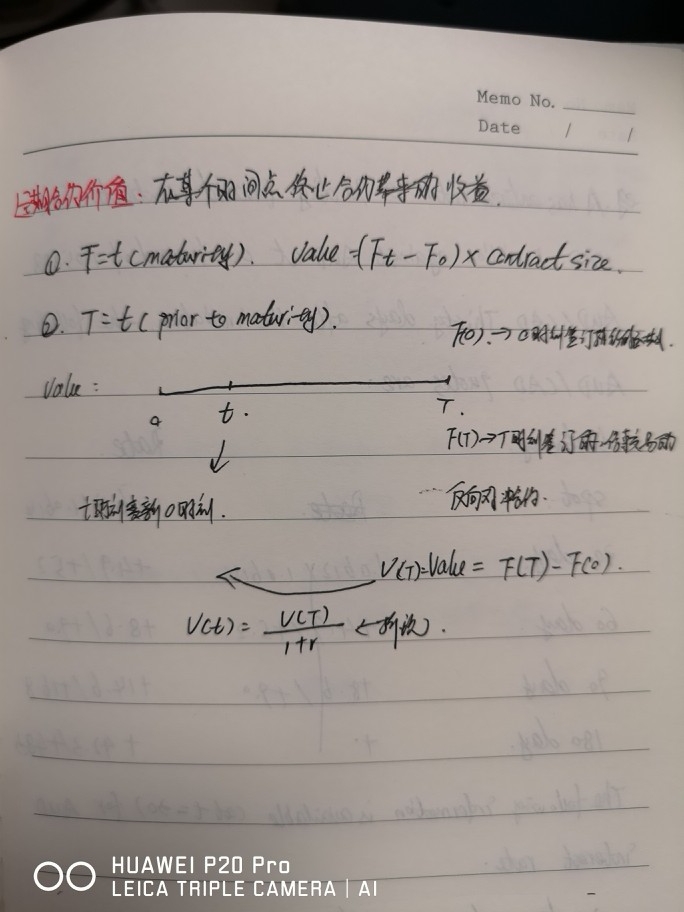 Memo No.
Date / /
合约价值：在某个时间点终止合约带来的收益.
①. T=t (maturity). Value = (Ft - F0) × contract size.
②. T=t (prior to maturity).
F(0) → 0时刻签订
Value:
0 t. T.
F(T) → T时刻签订的
t时刻 0时刻.
反向对冲合约.
V(T)=Value = F(T) - F(0).
V(t) = V(T) / 1+r ← 折现.
HUAWEI P20 Pro
LEICA TRIPLE CAMERA | AI